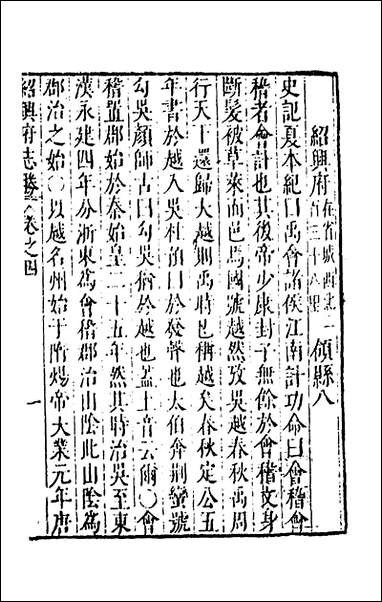 紹興府在省城西北一百三十八里領縣八
史記夏本紀曰禹會諸侯江南計功命曰會稽會
稽者會計也其後帝少康封子無余於會稽文身
斷髮被草萊而邑焉國號越然攷吳越春秋禹周
行天下還歸大越則禹時已稱越矣春秋定公五
年書於越入吳杜預曰於發聲也太伯奔荆蠻號
勾吳顏師古曰勾吳猶於越也蓋土音云爾〇會
稽置郡始於秦始皇二十五年然其時治吳至東
漢永建四年分浙東為會稽郡治山陰此山陰為
郡治之始〇以越名州始于隋煬帝大業元年唐
紹興府志勝 卷之四
一